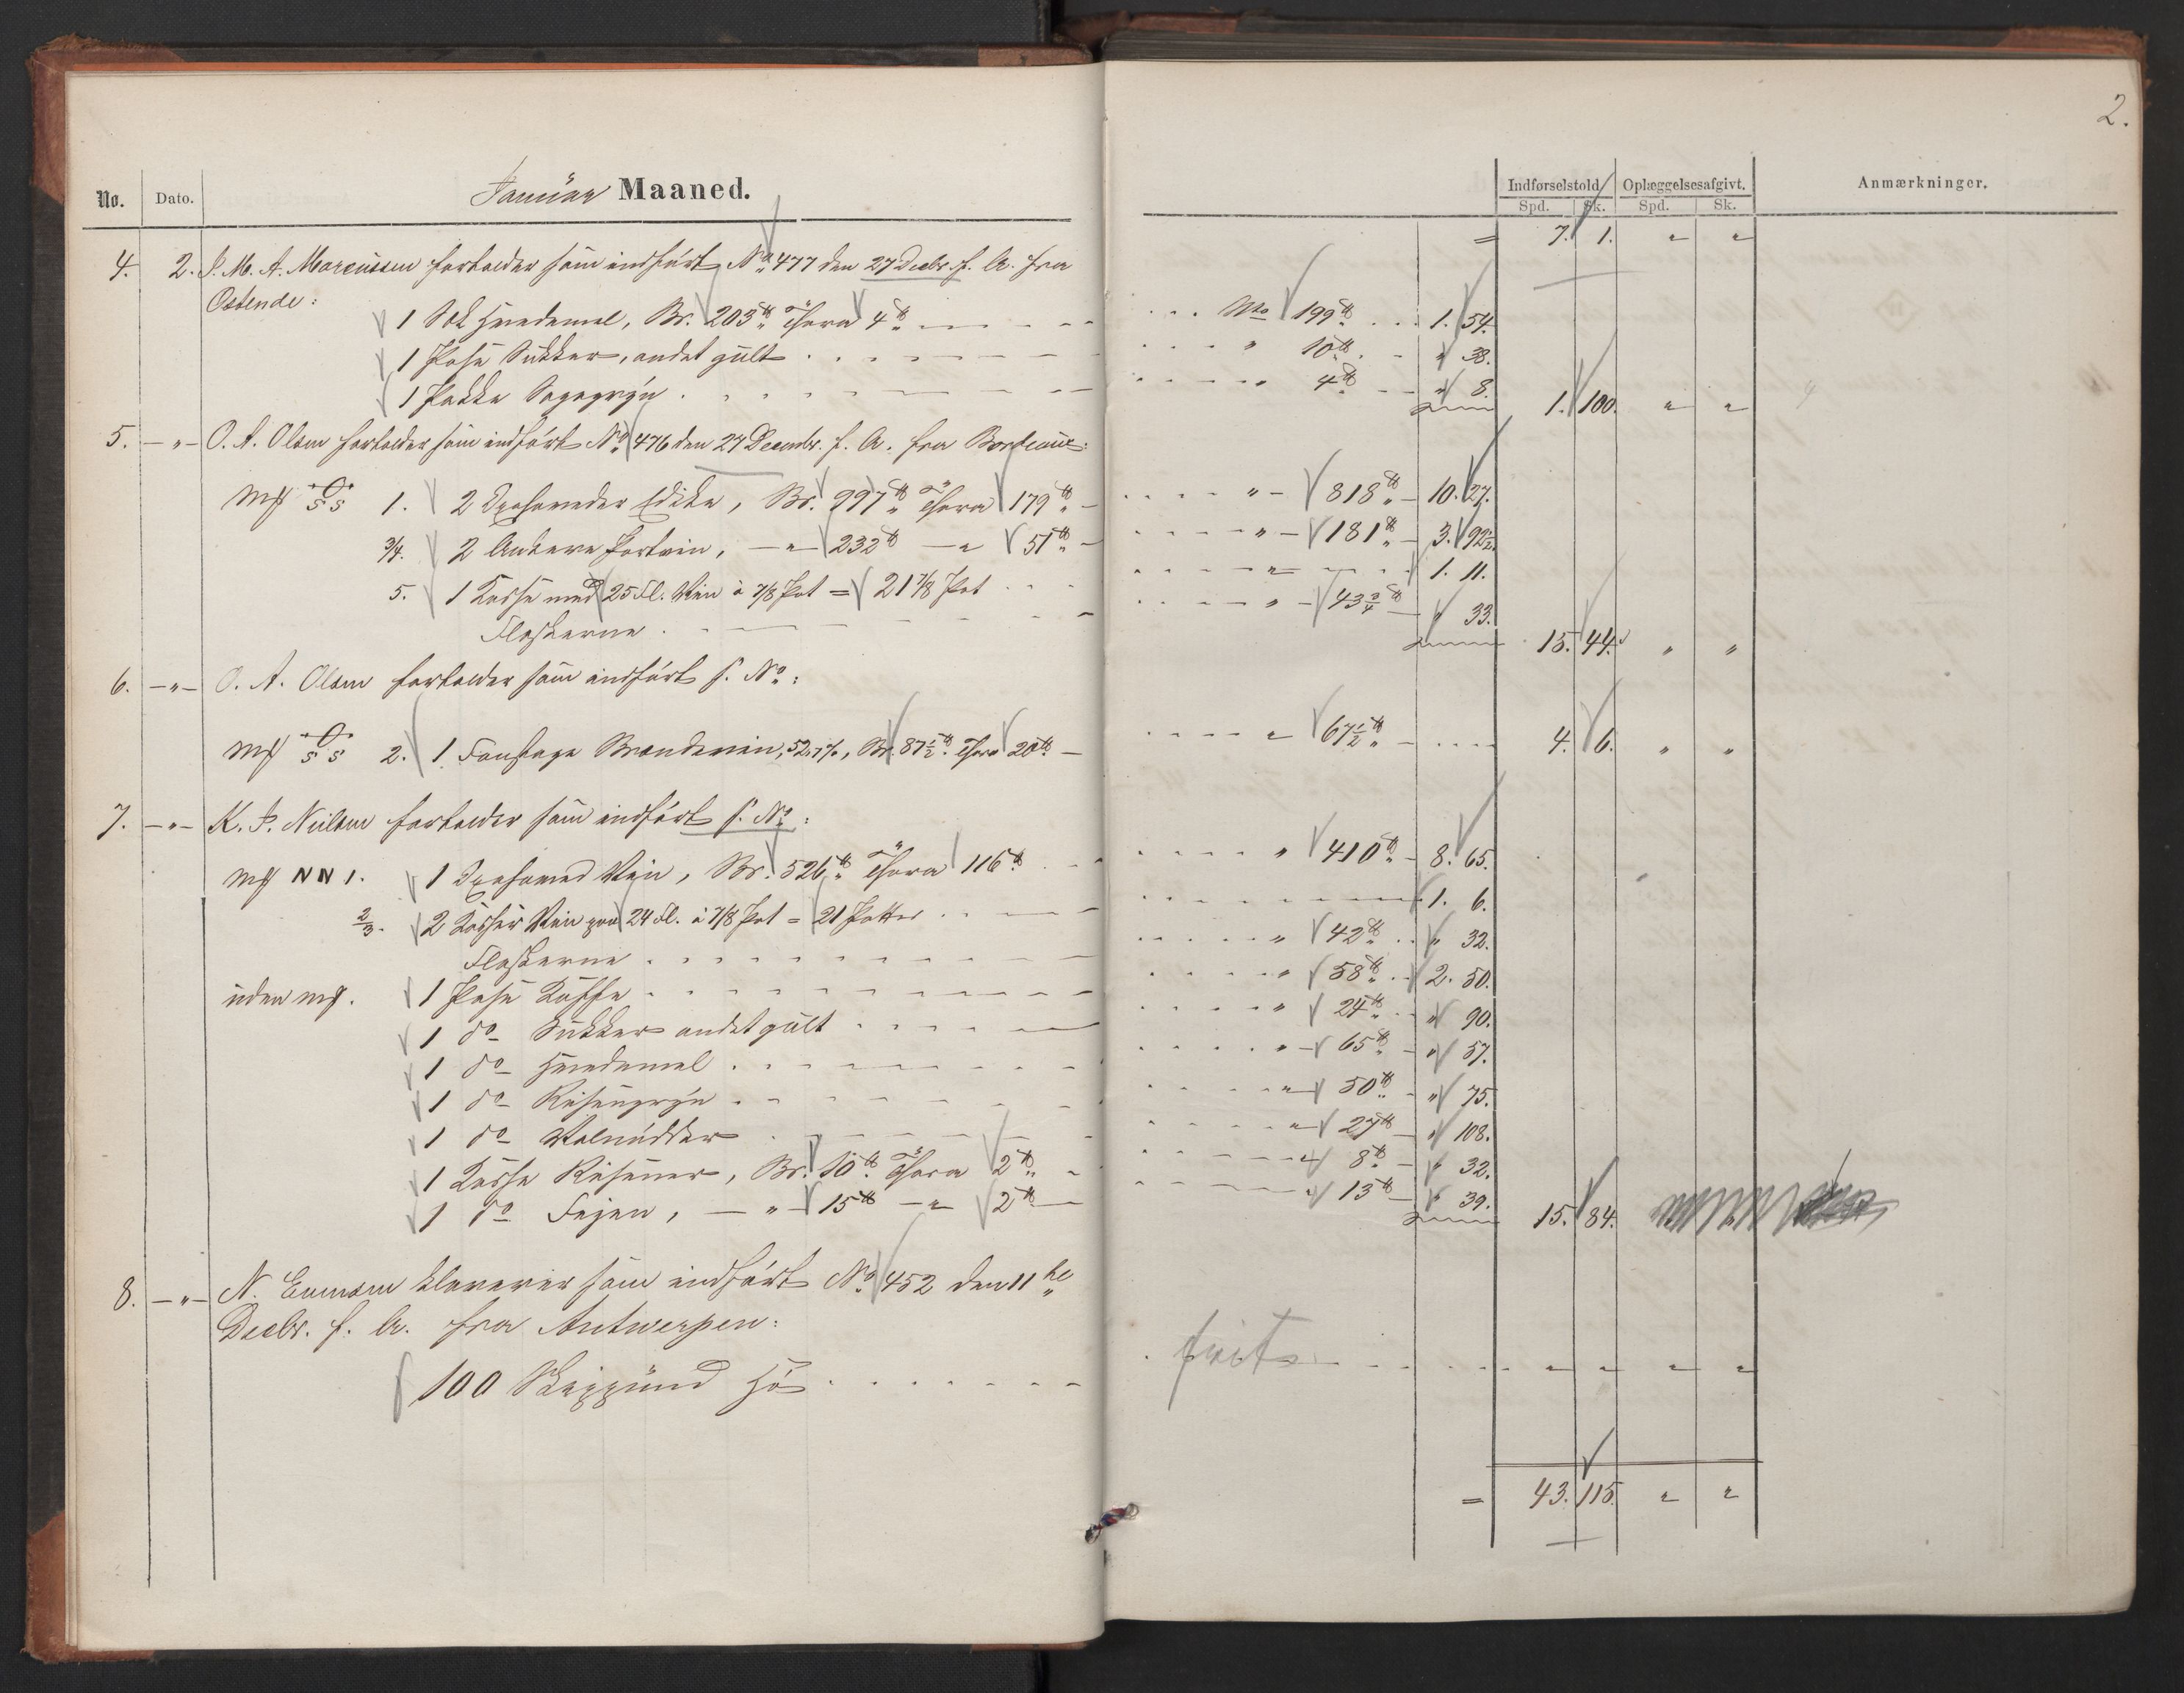 2.
No. Dato. Januar Maaned. Indførselstold Oplæggelsesafgivt. Anmærkninger.
Spd. Sk. Spd. Sk.
= 7. 1. " "
4. 2. P. M. A. Marcussen fortolder som indført No 477 den 27 Decbr. f. A. fra
Ostende:
1 Sæk Hvedemel, Br. 203 ℔ Thara 4 ℔ Nto 199 ℔ 1. 54.
1 Pose Sukker, andet gult 10 ℔ " 38.
1 Pakke Sagogryn " 4 ℔ " 8. 1. 100. " "
5. -"- O. A. Olsen fortolder som indført No 476 den 27 Decembr. f. A. fra Bordeaux:
Mk S S 1. 2 Oxehoveder Edike, Br. 997 ℔ Thara 179 ℔ - " - 818 ℔ - 10. 27.
3/4. 2 Ankere Portvin, -"- 232 ℔ -"- 51 ℔ - " - 181 ℔ - 3. 92½.
5. 1 Kasse med 25 Fl. Vin à 7/8 Pot = 21 7/8 Pot " 1. 11.
Flaskerne " - 43 3/4 ℔ " 33. 15. 44. " "
6. -"- O. A. Olsen fortolder som indført s. No:
Mk S S 2. 1 Foustage Brændevin, 52,7%, Br. 87½ ℔ Thara 20 ℔ - " 67½ ℔ - 4. 6. " "
7. -"- K. J. Nielsen fortolder som indført s. No:
Mk NN 1. 1 Oxehoved Vin, Br. 526 ℔ Thara 116 ℔ " 410 ℔ - 8. 65.
2/3. 2 Kasser Vin paa 24 Fl. à 7/8 Pot = 21 Potter 1. 6.
Flaskerne " 42 ℔ " 32.
uden mk. 1 Pose Kaffe " 58 ℔ 2. 50.
1 do Sukker andet gult " 24 ℔ " 90.
1 do Hvedemel " - 65 ℔ - " 57.
1 do Risengryn " 50 ℔ - " 75.
1 do Valnødder " 27 ℔ - " 108.
1 Kasse Rosiner, Br. 10 ℔ Thara 2 ℔ " 8 ℔ - " 32.
1 do Figen, - " - 15 ℔ -"- 2 ℔ - " 13 ℔ - " 39. 15. 84.
8. -"- N. Evensen klarerer som indført No 452 den 11te
Decbr. f. A. fra Antwerpen:
100 Skippund Hø frit " " " "
= 43. 115. " "